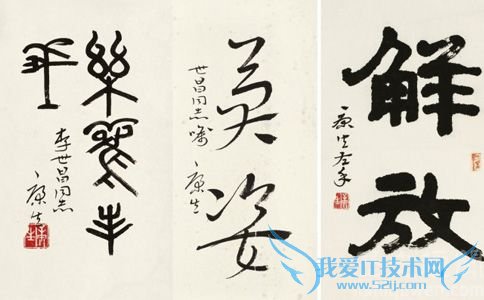 樂為牛
李世昌同志
康生
英姿
世昌同志嘱
康生
解放
康生左手
我爱IT技术网
www.52ij.com